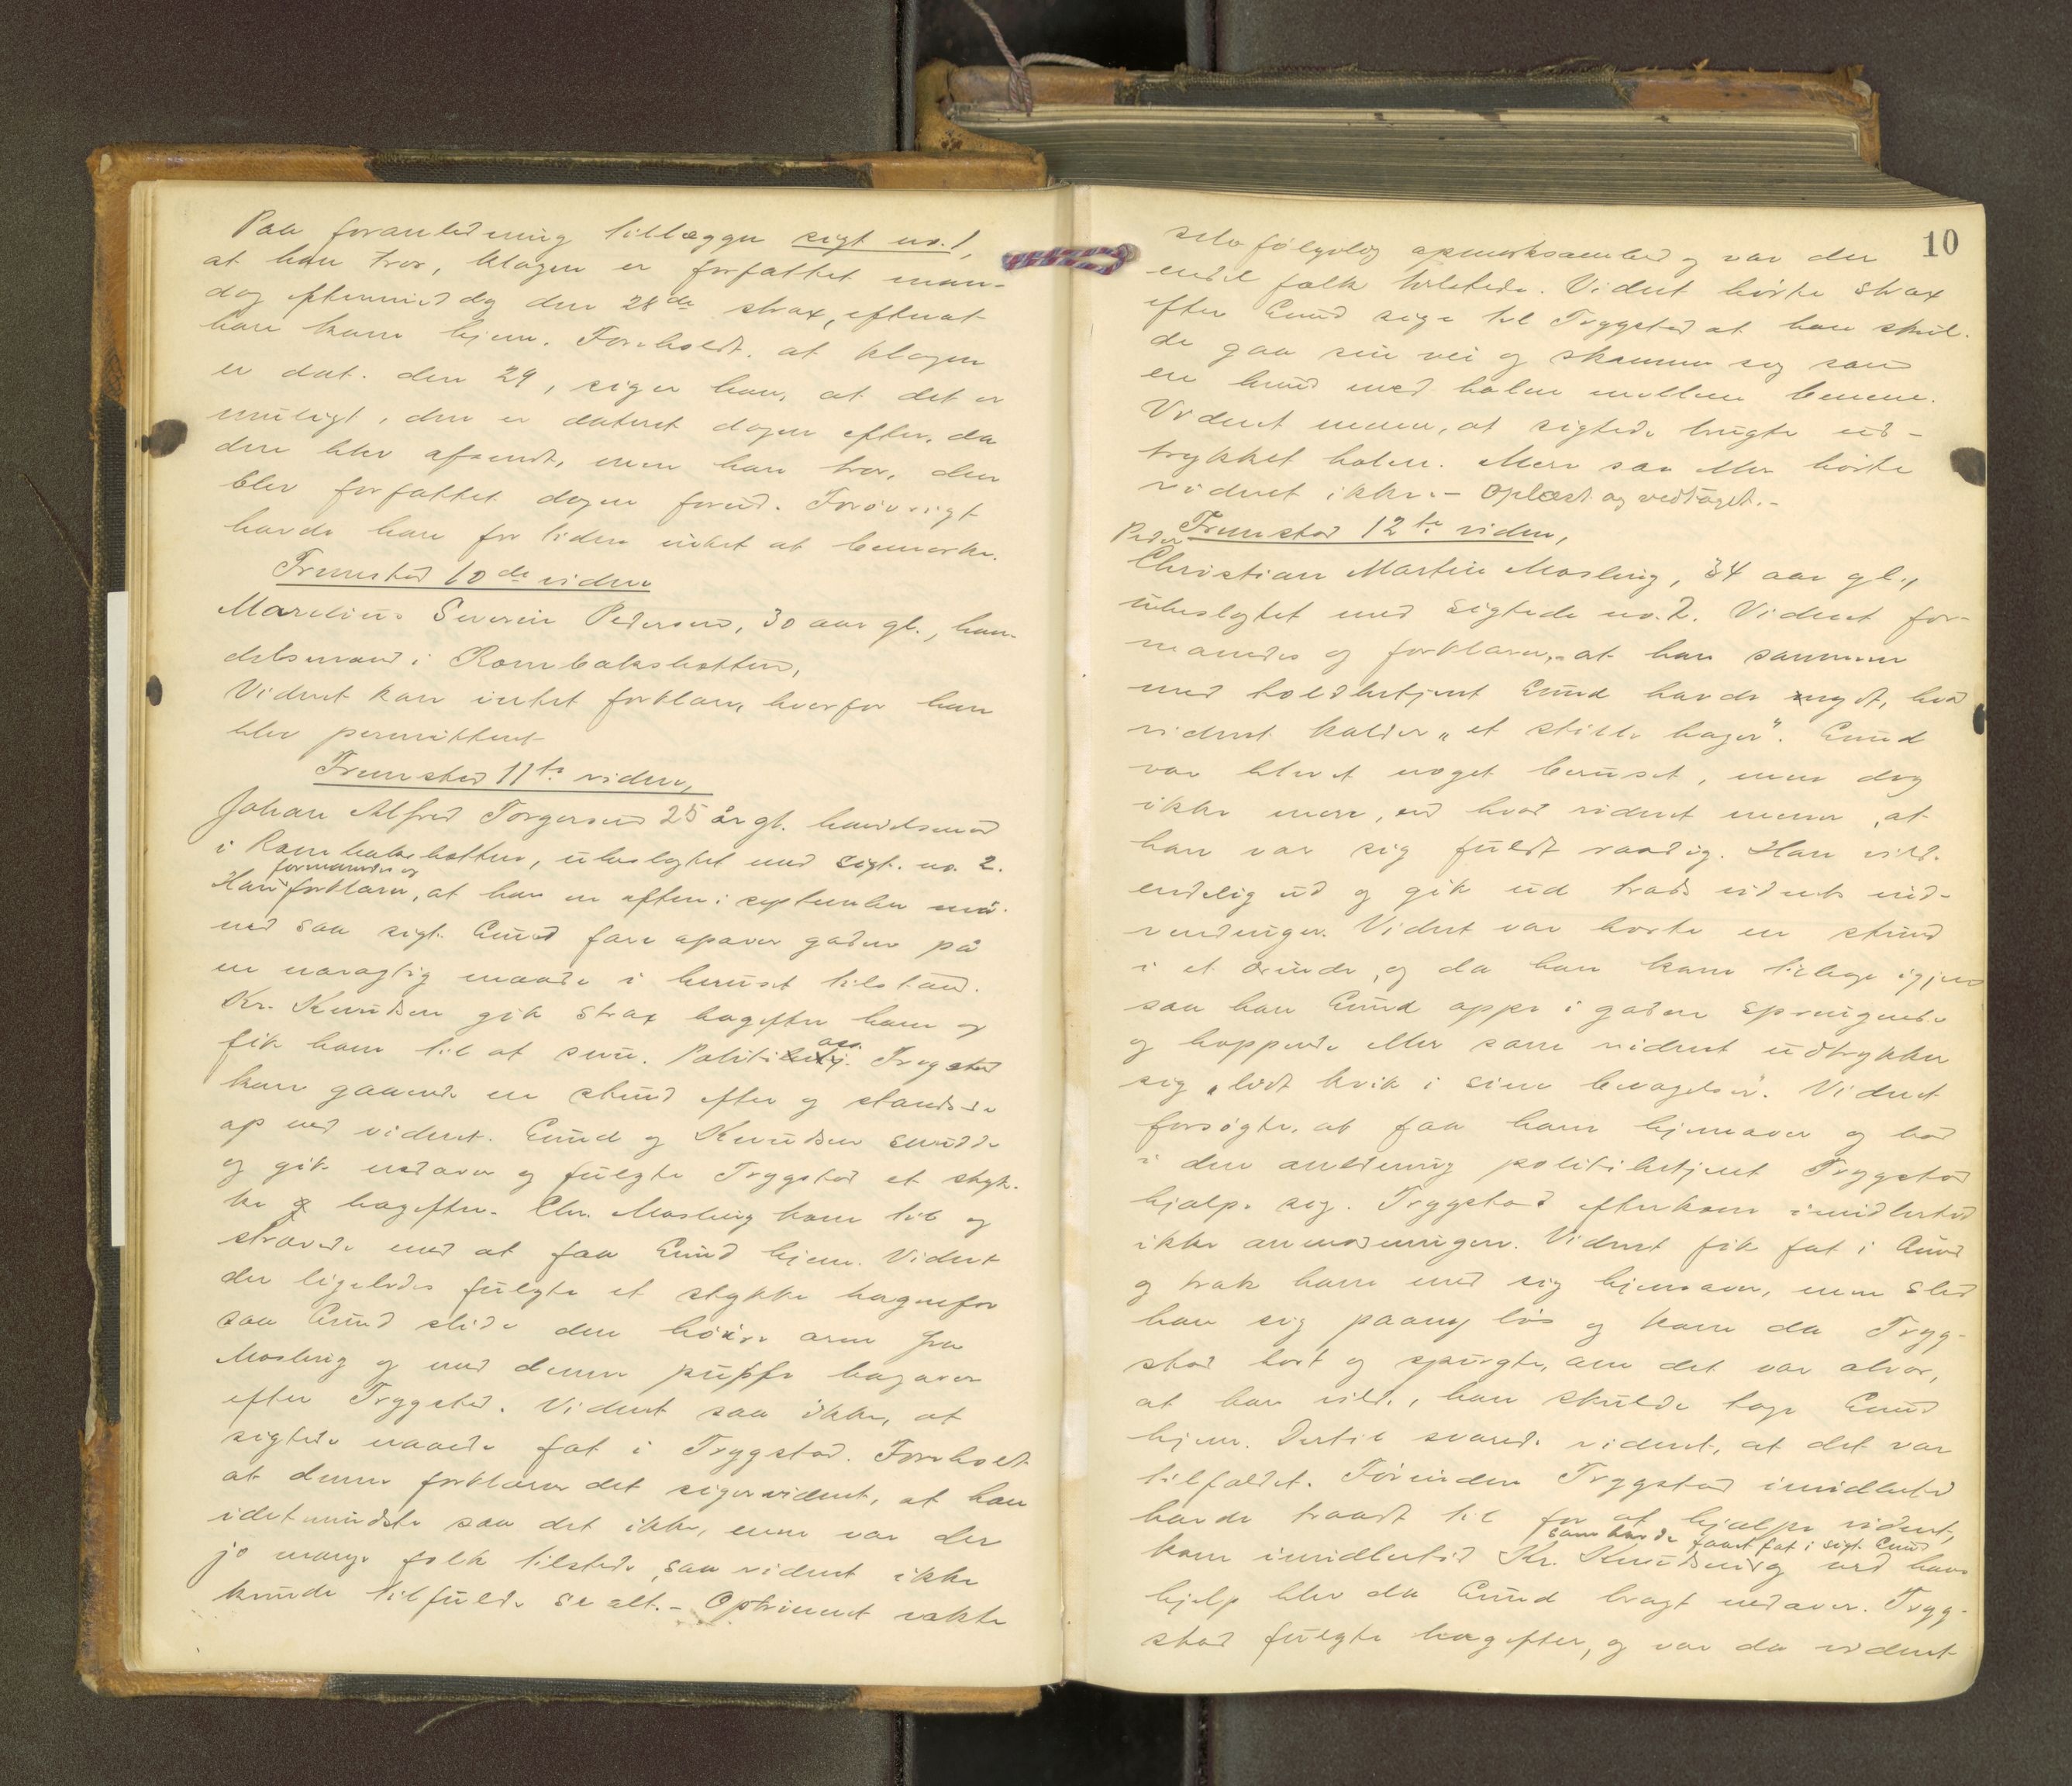 Paa foranledning tillægger sigt no. 1,
at han tror, klagen er forfattet man-
dag eftermiddag den 28de strax, efterat
han kom hjem. Foreholdt, at klagen
er dat. den 29, siger han, at det er
muligt, den er dateret dagen efter, da
den blev afsendt, men han tror, den
blev forfattet dagen forud. Forøvrigt
havde han for tiden intet at bemærke.
Fremstod 10de vidne
Marelius Severin Pedersen, 30 aar gl., han-
delsmand i Rombaksbotten,
Vidnet kan intet forklare, hvorfor han
blev permitteret
Fremstod 11te vidne,
Johan Alfred Torgersen 25 år gl. handelsmand
i Rombaksbotten, ubeslegtet med sigt. no. 2.
formandes og
Han forklarer, at han en aften i september må-
ned saa sigt. Emud fare opover gaden på
en naragtig maade i beruset tilstand.
Kr. Knudsen gik strax bagefter ham og
fik ham til at snu. Politi Trygstad
kom gaaende en stund efter og standsede
op ved vidnet. Emud og Knudsen snudde
og gik nedover og fulgte Trygstad et styk-
ke bagefter. Chr. Mosling kom til og
strævede med at faa Emud hjem. Vidnet
der ligeledes fulgte et stykke bagenfor
saa Emud slide den høire arm fra
Mosling og med denne puffe bagover
efter Trygstad. Vidnet saa ikke, at
sigtede naaede fat i Trygstad. Foreholdt
at denne forklarer det siger vidnet, at han
idetmindste saa det ikke, men var der
jo mange folk tilstede, saa vidnet ikke
kunde tilfulde se alt. - Optrinet vakte
10
selvfølgelig opmerksomhed og var der
endel folk tilstede. Vidnet hørte strax
efter Emud sige til Trygstad at han skul-
de gaa sin vei og skamme sig som
en hund med halen mellem benene.
Vidnet mener, at sigtede brugte ud-
trykket halen. Mere saa eller hørte
vidnet ikke. - Oplæst og vedtaget. -
Fremstod 12te vidne,
Peder
Christian Martin Mosling, 34 aar gl.,
ubeslegtet med sigtede no. 2. Vidnet for-
manedes og forklarer, at han sammen
med toldbetjent Emud havde nydt, hvad
vidnet kalder „et stille bæger“. Emud
var blevet noget beruset, men dog
ikke mere, end hvad vidnet mener, at
han var sig fuldt raadig. Han vilde
endelig ud og gik ud trods vidnets ind-
vendinger. Vidnet var borte en stund
i et ærinde, og da han kom tilbage igjen
saa han Emud oppe i gaden springende
og hoppende eller som vidnet udtrykker
sig „lidt kvik i sine bevægelser“. Vidnet
forsøgte, at faa ham hjemover og bad
i den anledning politibetjent Trygstad
hjælpe sig. Trygstad efterkom imidlertid
ikke anmodningen. Vidnet fik fat i Emud
og trak ham med sig hjemover, men sled
han sig paany løs og kom da Tryg-
stad bort og spurgte, om det var alvor,
at han vilde, han skulde tage Emud
hjem. Dertil svarede vidnet, at det var
tilfældet. Førinden Trygstad imidlertid
havde traadt til for at hjælpe vidnet,
som havde faaet fat i sigt. Emud
kom imidlertid Kr. Knudsen og ved hans
hjelp blev da Emud bragt nedover. Tryg-
stad fulgte bagefter, og var da vidnet